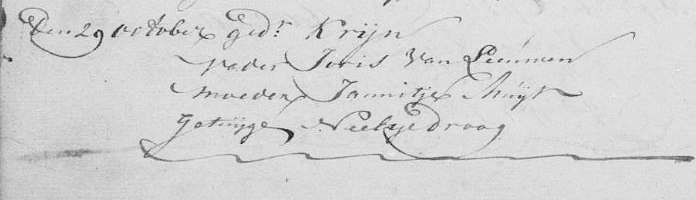 Den 29 october gedr Krijn
vader Joris Van Leeuwen
moeder Jannitje Kluijt
Getuijge Neeltje Droog